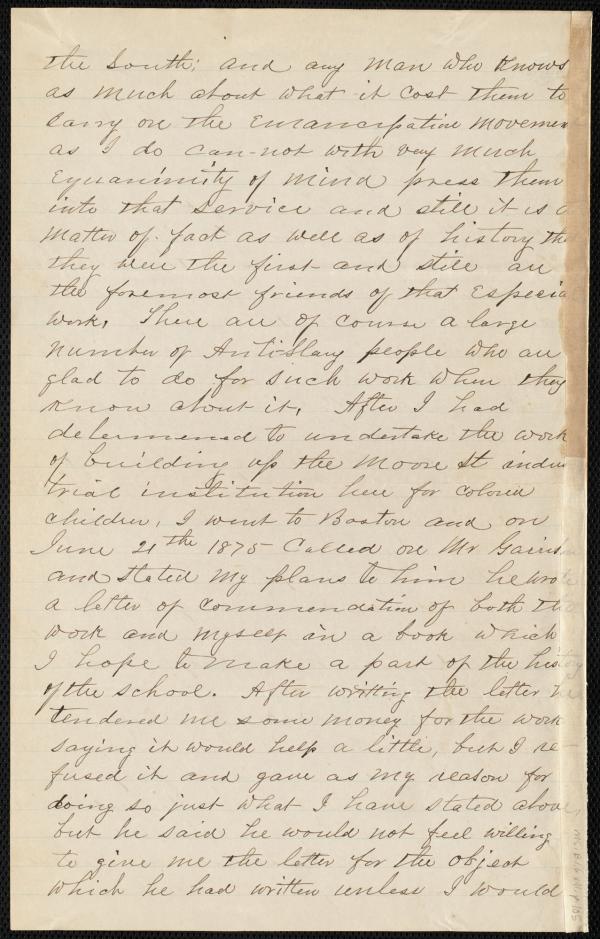 the South; and any man who knows
as much about what it cost them to
carry on the Emancipation movemen
as I do can-not with very much
Equanimity of mind press them
into that service and still it is a
matter of fact as well as of history tha
they were the first and still are
the foremost friends of that Especia
work. There are of course a large
number of Anti-Slavy people who are
glad to do for such work when they
know about it. After I had
determened to undertake the work
of building up the Moore St indus
trial institution here for colored
children, I went to Boston and on
June 21th 1875 Called on Mr Garrison
and stated my plans to him he wrote
a letter of commendation of both the
work and myself in a book which
I hope to make a part of the history
of the school. After writting the letter he
tendered me some money for the work
saying it would help a little, but I re-
fused it and gave as my reason for
doing so just what I have stated above,
but he said he would not feel willing
to give me the letter for the object
which he had written unless I would